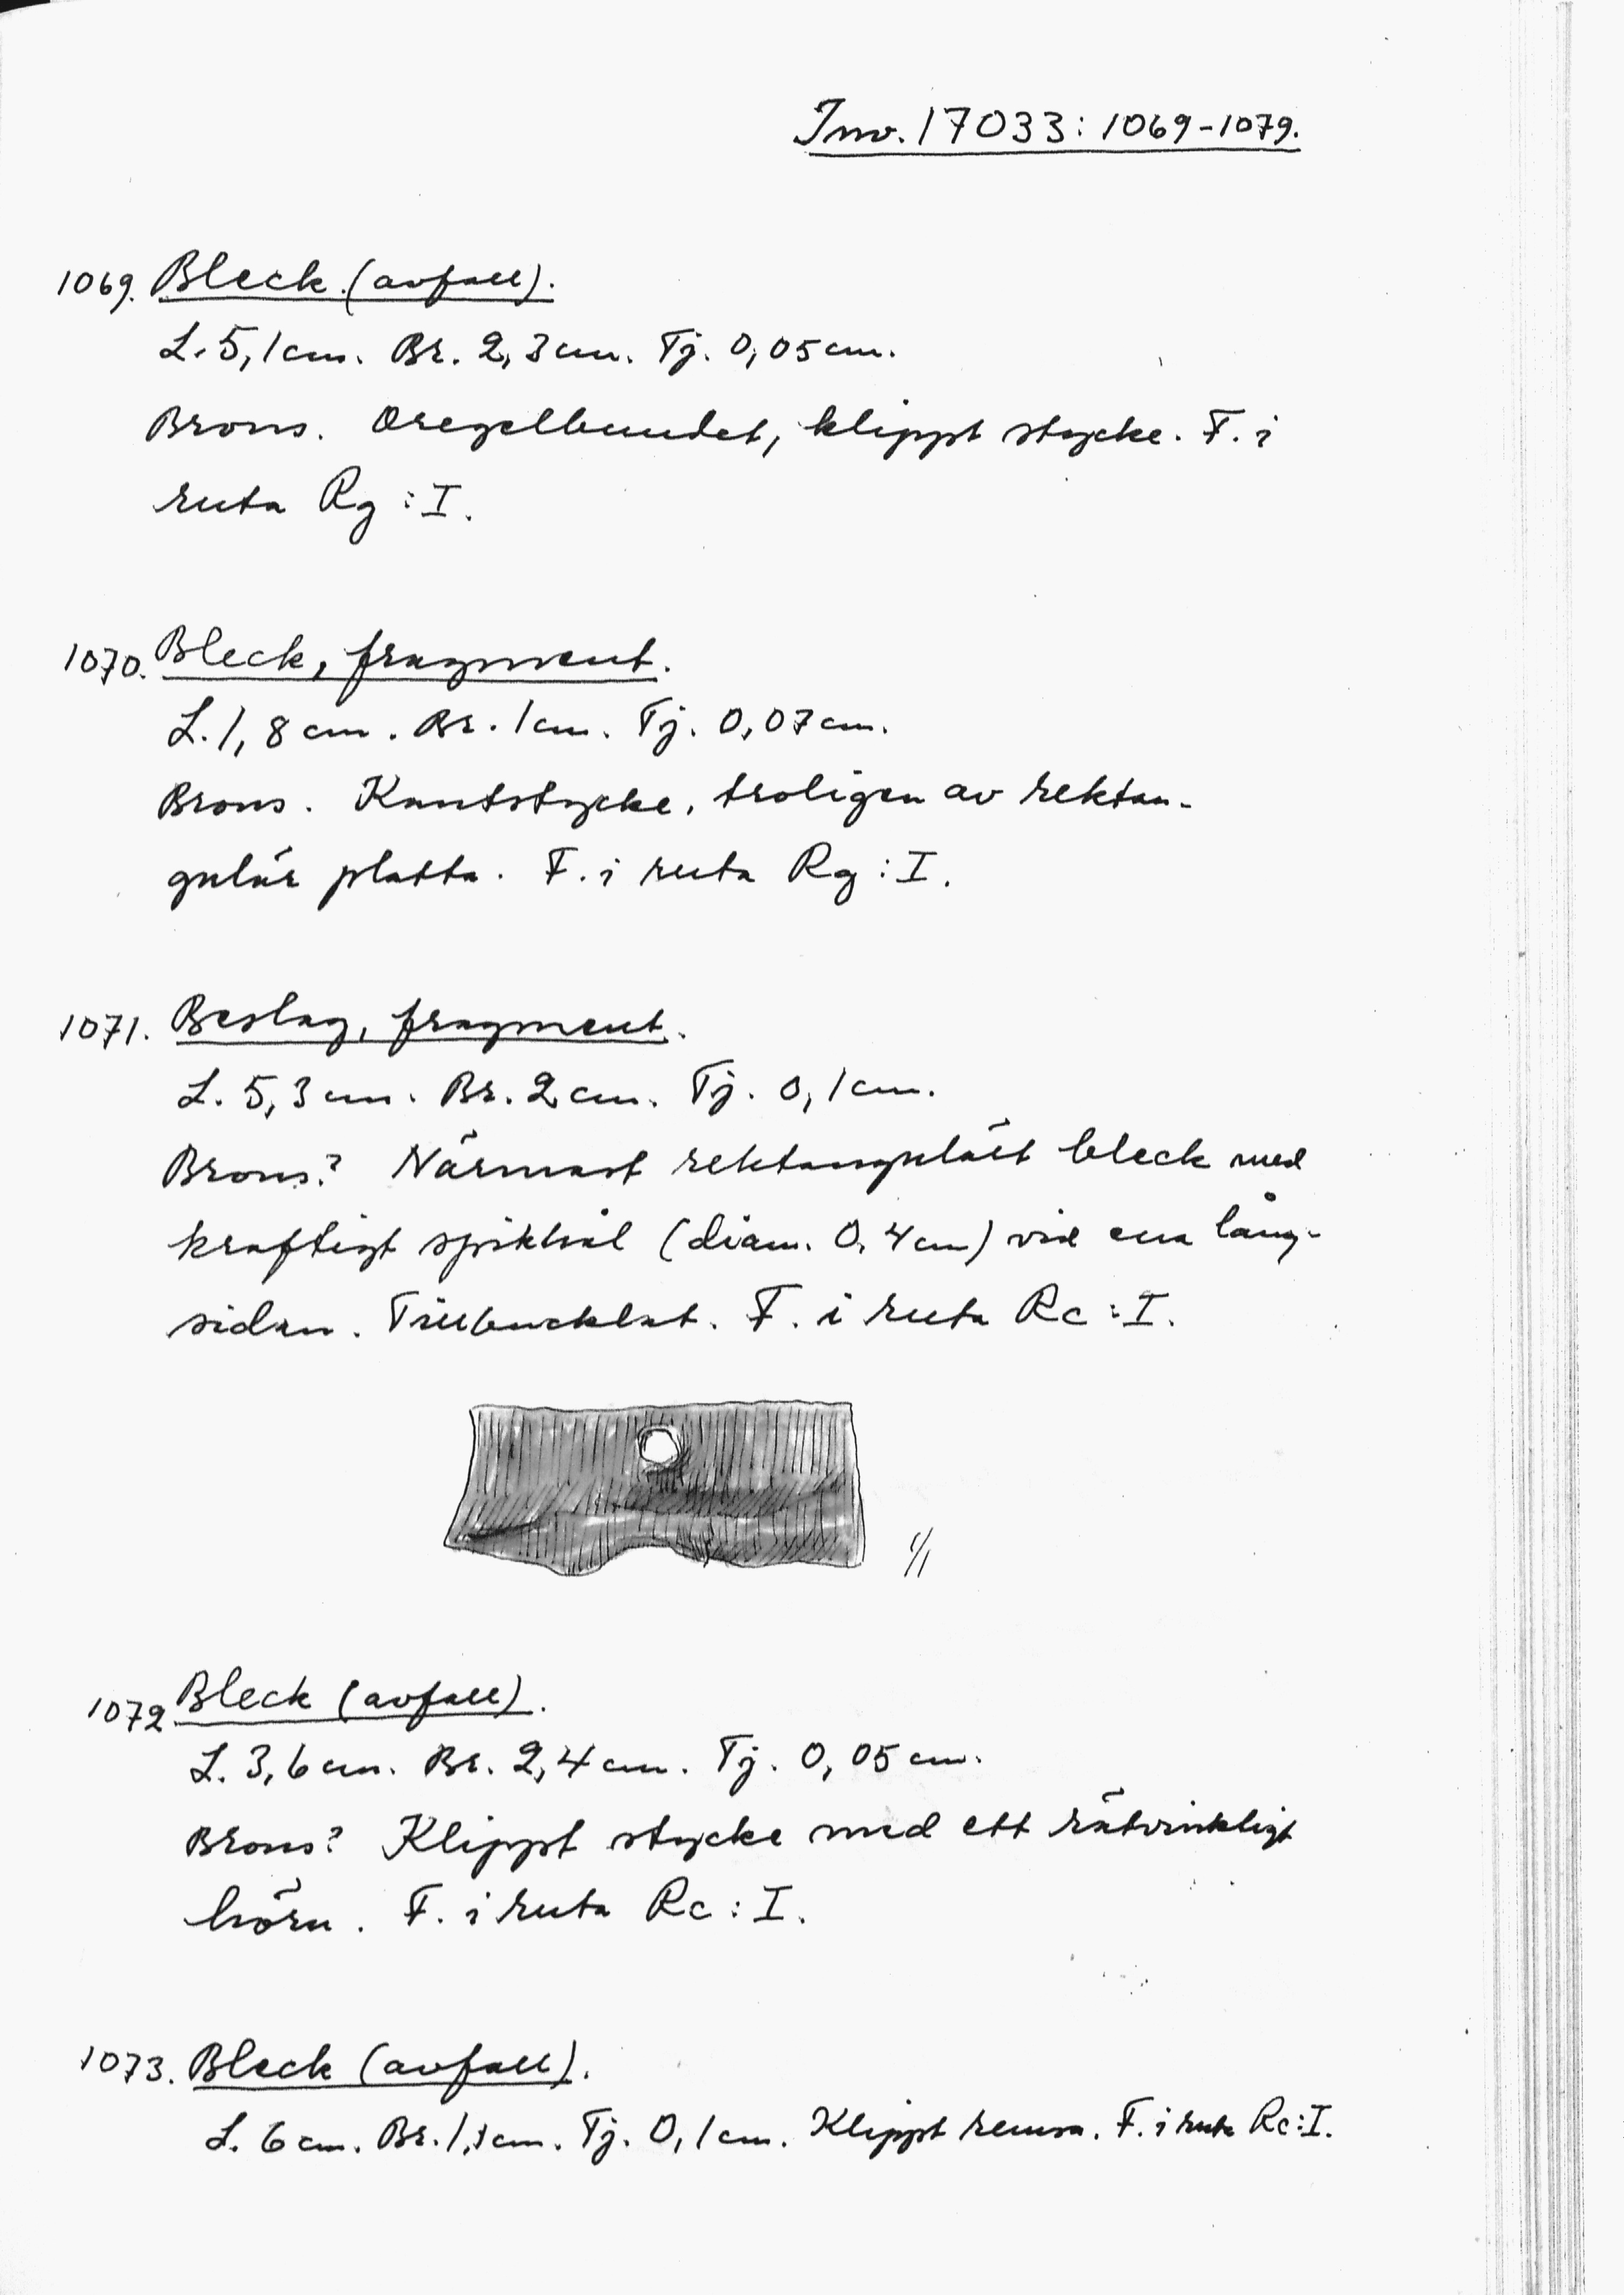 Inv. 17033: 1069-1079.
1069. Bleck. (avfall).
L. 5,1 cm. Br. 2,3 cm. Tj. 0,05 cm.
Brons. Oregelbundet, klippt stycke. F. i
ruta Rg : I.
1070. Bleck, fragment.
L. 1,8 cm. Br. 1 cm. Tj. 0,07 cm.
Brons. Kantstycke, troligen av rektan-
gulär platta. F. i ruta Rg : I.
1071. Beslag, fragment.
L. 5,3 cm. Br. 2 cm. Tj. 0,1 cm.
Brons? Närmast rektangulärt bleck med
kraftigt spikhål (diam. 0,4 cm) vid ena lång-
sidan. Tillbucklat. F. i ruta Rc : I.
1/1
1072 Bleck (avfall).
L. 3,6 cm. Br. 2,4 cm. Tj. 0,05 cm.
Brons? Klippt stycke med ett rätvinkligt
hörn. F. i ruta Rc : I.
1073. Bleck (avfall).
L. 6 cm. Br. cm. Tj. 0,1 cm. Klippt remsa. F. i ruta Rc : I.